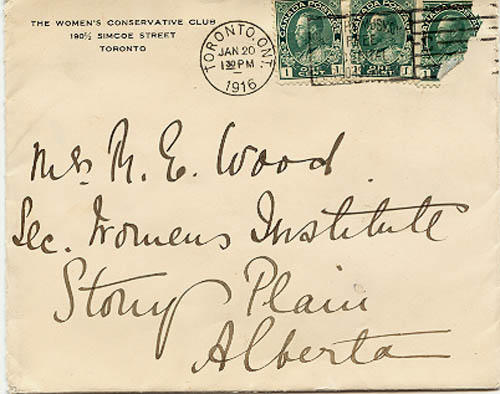 THE WOMEN'S CONSERVATIVE CLUB
190½ SIMCOE STREET
TORONTO
TORONTO, ONT.
JAN 20
1 30 PM
1916
CANADA POSTAGE
1 1
Mrs. R. E. Wood
Sec. Womens Institute
Stony Plain
Alberta